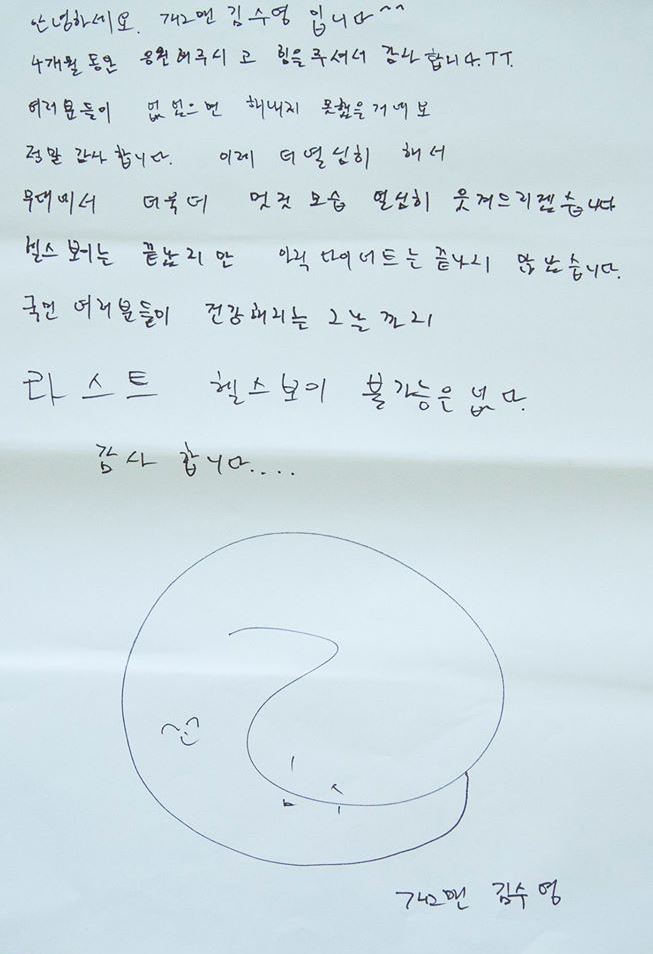 안녕하세요. 개그맨 김수영 입니다^^
4개월 동안 응원해주시고 힘을 주셔서 감사합니다.TT.
여러분들이 없었으면 해내지 못했을거예요
정말 감사합니다. 이제 더 열심히 해서
무대에서 더욱더 멋진 모습 열심히 웃겨드리겠습니다
헬스보이는 끝났지만 아직 다이어트는 끝나지 않았습니다.
국민 여러분들이 건강해지는 그날 까지
라스트 헬스보이 불가능은 없다.
감사 합니다....
개그맨 김수영